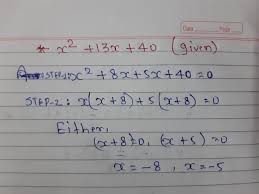 * x² + 13x + 40 (given)
STEP-1: x² + 8x + 5x + 40 = 0
STEP-2: x(x+8) + 5(x+8) = 0
Either,
(x+8) = 0, (x+5) = 0
x = -8, x = -5